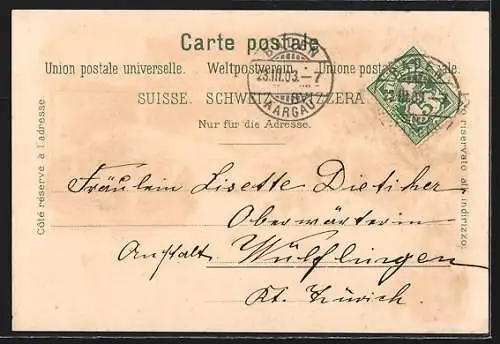 Carte postale
Union postale universelle. Weltpostverein. Unione postale universale.
SUISSE. SCHWEIZ. SVIZZERA.
Nur für die Adresse.
Côté réservé à l'adresse.
Lato riservato all' indirizzo.
BADEN
23.III.03.–7
(AARGAU)
5
Fräulein Lisette Dieticher
Oberwärterin
Anstalt Wülflingen
Kt. Zürich